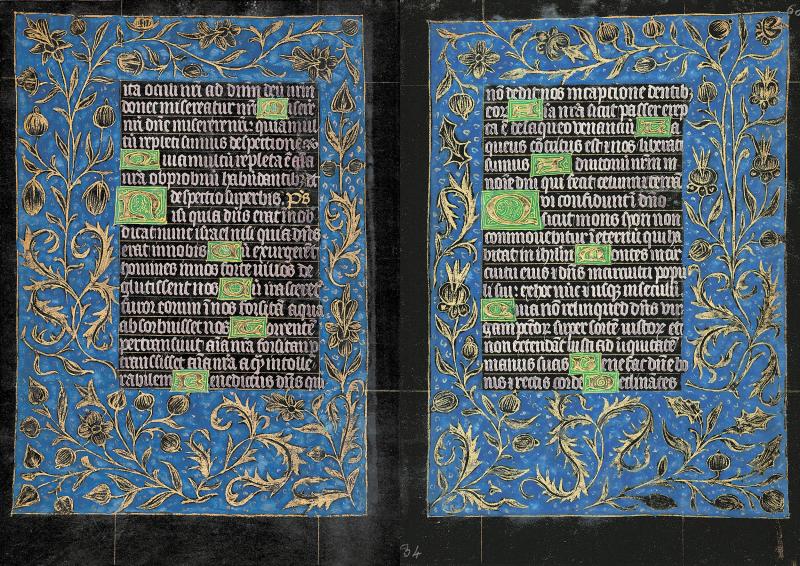 ita oculi nr̄i ad dn̄m deū nr̄m
donec misereatur nr̄i Misere
nr̄i dn̄e miserere nr̄i: quia mul
tū repleti sumus despectione
Quia multū repleta ē aīa
nr̄a obprobriū habūdantibus et
despectio superbis. p̄s
Nisi quia dn̄s erat in nob
dicat nunc israel nisi quia dn̄s
erat in nobis Cū exurgerēt
homines in nos forte viuos de
glutissent nos Cū irasceret
furor eorum ī nos forsitā aqua
absorbuisset nos Torrentē
pertransiuit aīa nr̄a forsitan p
transisset aīa nr̄a aq̄ intolle
rabilem Benedictus dn̄s qui
nō dedit nos in captione dentib;
eor Aīa nr̄a sicut passer erep
ta ē de laqueo venantiū La
queus cōtritus est et nos liberati
sumus Adiutoriū nr̄m in
noīe dn̄i qui fecit celum et terrā
Qui confidunt ī dn̄o
sicut mons syon non
commouebitur ī eternū qui ha
bitat in ihrlm Montes in cir
cuitu eius et dn̄s in circuitu popu
li sui: ex hoc nūc et usq; in seculū
Quia nō relinquet dn̄s vir
gam pctōr super sortē iustor ut
non extendāt iusti ad īiquitatē
manus suas Benefac dn̄e bo
nis et rectis corde Declinātes
34